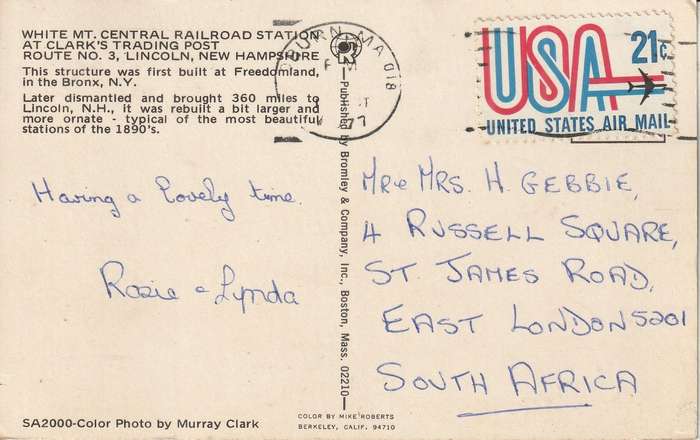 WHITE MT. CENTRAL RAILROAD STATION
AT CLARK'S TRADING POST
ROUTE NO. 3, LINCOLN, NEW HAMPSHIRE
This structure was first built at Freedomland,
in the Bronx, N.Y.
Later dismantled and brought 360 miles to
Lincoln, N.H., it was rebuilt a bit larger and
more ornate - typical of the most beautiful
stations of the 1890's.
Having a lovely time.
Rozie & Lynda
SA2000-Color Photo by Murray Clark
Published by Bromley & Company, Inc., Boston, Mass. 02210
COLOR BY MIKE ROBERTS
BERKELEY, CALIF. 94710
MA 018
PM
77
USA 21c
UNITED STATES AIR MAIL
MR & MRS. H. GEBBIE,
4 RUSSELL SQUARE,
ST. JAMES ROAD,
EAST LONDON 5201
SOUTH AFRICA